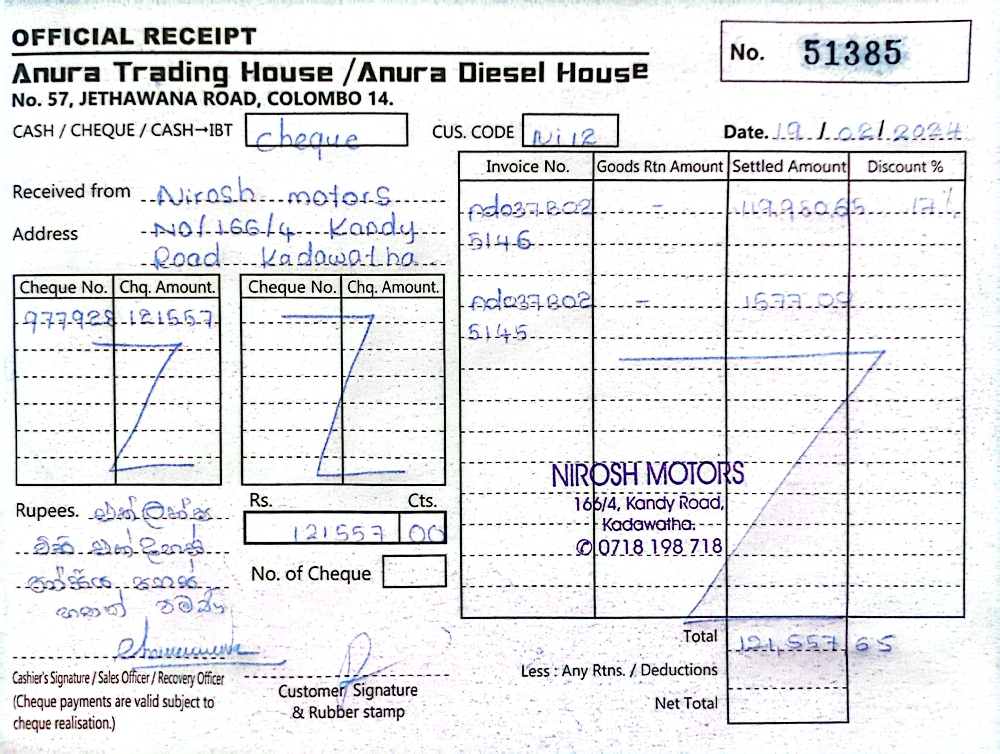 OFFICIAL RECEIPT
No. 51385
Anura Trading House / Anura Diesel House
No. 57, JETHAWANA ROAD, COLOMBO 14.
CASH / CHEQUE / CASH→IBT cheque CUS. CODE Ni12 Date. 19 / 02 / 2024
Invoice No. Goods Rtn Amount Settled Amount Discount %
Received from Nirosh motors
Address No/166/4 Kandy
Road Kadawatha
ado37B02 - 119,980.65 17%
5146
ado37B02 - 1577 00
5145
Cheque No. Chq. Amount. Cheque No. Chq. Amount.
977928 121557
NIROSH MOTORS
166/4, Kandy Road,
Kadawatha.
✆ 0718 198 718
Rupees. එක් ලක්ෂ
විසි එක් දහස්
පන්සිය පනස්
හතක් පමණි
Rs. Cts.
121557 00
No. of Cheque
Total 121,557 65
Less : Any Rtns. / Deductions
Net Total
Cashier's Signature / Sales Officer / Recovery Officer
(Cheque payments are valid subject to
cheque realisation.)
Customer Signature
& Rubber stamp